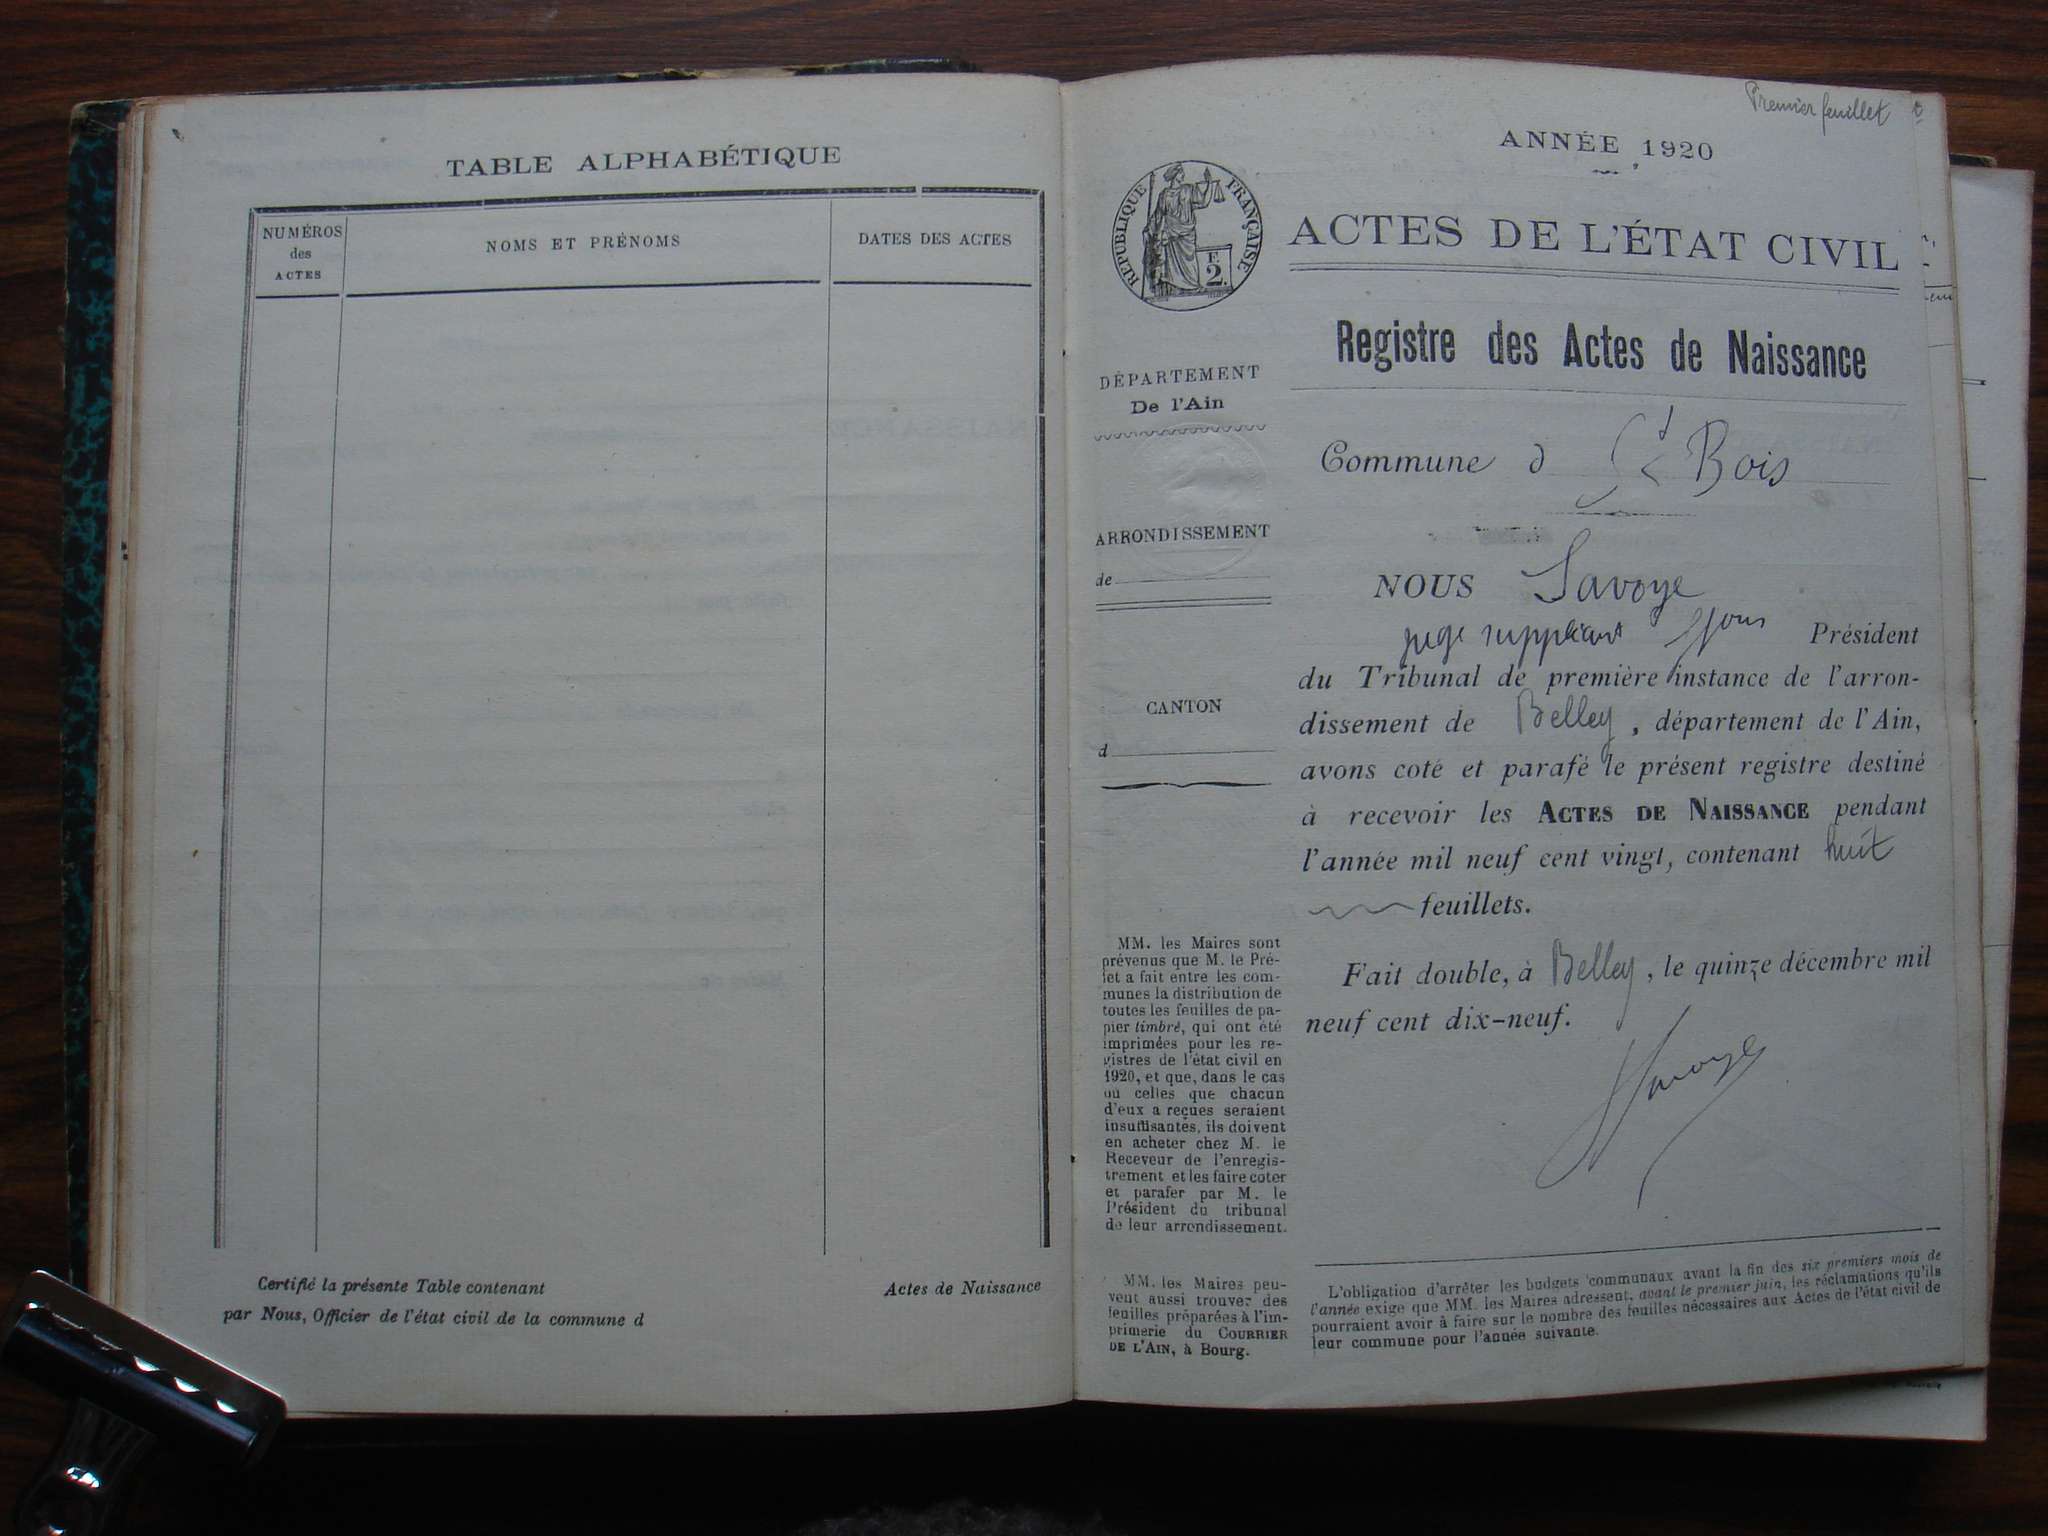 TABLE ALPHABÉTIQUE
NUMÉROS
des
ACTES
NOMS ET PRÉNOMS
DATES DES ACTES
Certifié la présente Table contenant Actes de Naissance
par Nous, Officier de l'état civil de la commune d
Premier feuillet
ANNÉE 1920
RÉPUBLIQUE FRANÇAISE
F.
2.
ACTES DE L'ÉTAT CIVIL
Registre des Actes de Naissance
DÉPARTEMENT
De l'Ain
Commune d St Bois
ARRONDISSEMENT
de
CANTON
d
NOUS Savoye
juge suppléant Président
du Tribunal de première instance de l'arron-
dissement de Belley, département de l'Ain,
avons coté et parafé le présent registre destiné
à recevoir les ACTES DE NAISSANCE pendant
l'année mil neuf cent vingt, contenant huit
feuillets.
Fait double, à Belley, le quinze décembre mil
neuf cent dix-neuf.
Savoye
MM. les Maires sont
prévenus que M. le Pré-
fet a fait entre les com-
munes la distribution de
toutes les feuilles de pa-
pier timbré, qui ont été
imprimées pour les re-
gistres de l'état civil en
1920, et que, dans le cas
où celles que chacun
d'eux a reçues seraient
insuffisantes, ils doivent
en acheter chez M. le
Receveur de l'enregis-
trement et les faire coter
et parafer par M. le
Président du tribunal
de leur arrondissement.
MM. les Maires peu-
vent aussi trouver des
feuilles préparées à l'im-
primerie du COURRIER
DE L'AIN, à Bourg.
L'obligation d'arrêter les budgets communaux avant la fin des six premiers mois de
l'année exige que MM. les Maires adressent, avant le premier juin, les réclamations qu'ils
pourraient avoir à faire sur le nombre des feuilles nécessaires aux Actes de l'état civil de
leur commune pour l'année suivante.